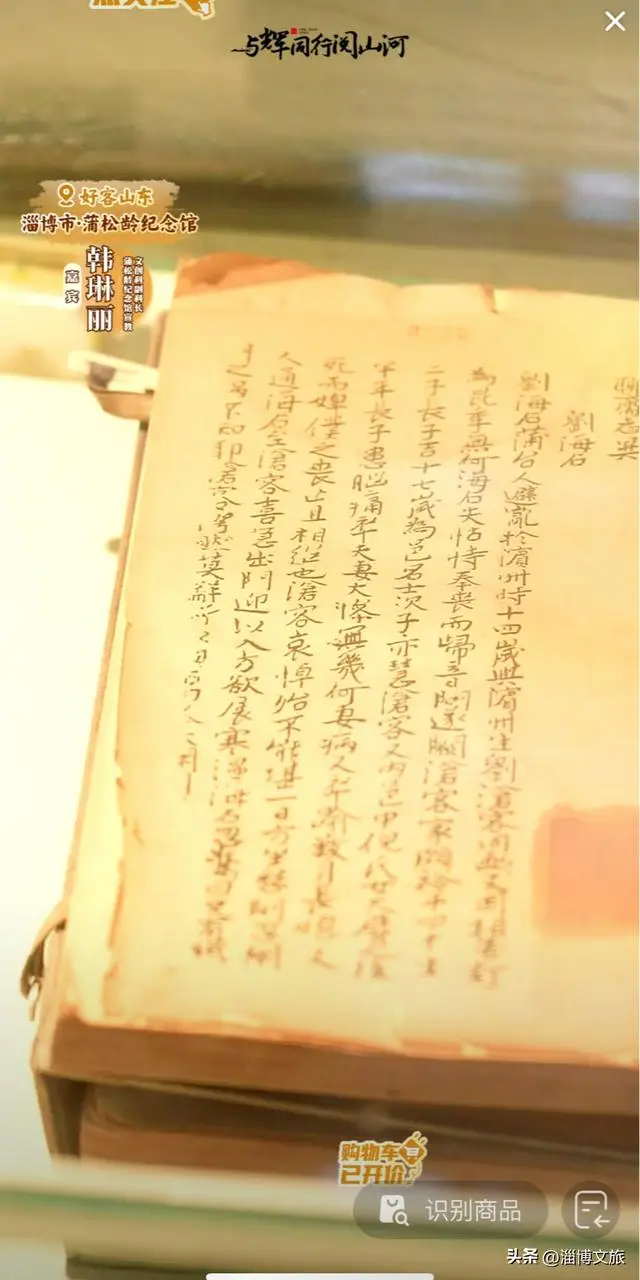 与辉同行阅山河
好客山东
淄博市·蒲松龄纪念馆
嘉宾
韩琳丽
蒲松龄纪念馆宣教
文创科副科长
聊齋志異
劉海石
劉海石蒲台人避亂於濱州時十四歲與濱州生劉滄客同函丈因相善訂
為昆季無何海石失怙恃奉喪而歸音問遂闕滄客家頗裕年四十生
二子長子吉十七歲為邑名士次子亦慧滄客又內邑中倪氏女大嬖之後
半年長子患腦痛卒夫妻大慘無幾何妻病又卒踰數月長媳又
死而婢僕之喪亡且相繼也滄客哀悼殆不能堪一日方坐愁間忽閽
人通海石至滄客喜急出門迎以入方欲展寒溫海石忽驚曰兄有滅
之禍不知耶滄客愕然莫解所以海石曰
购物车
已开价
识别商品
头条 @淄博文旅